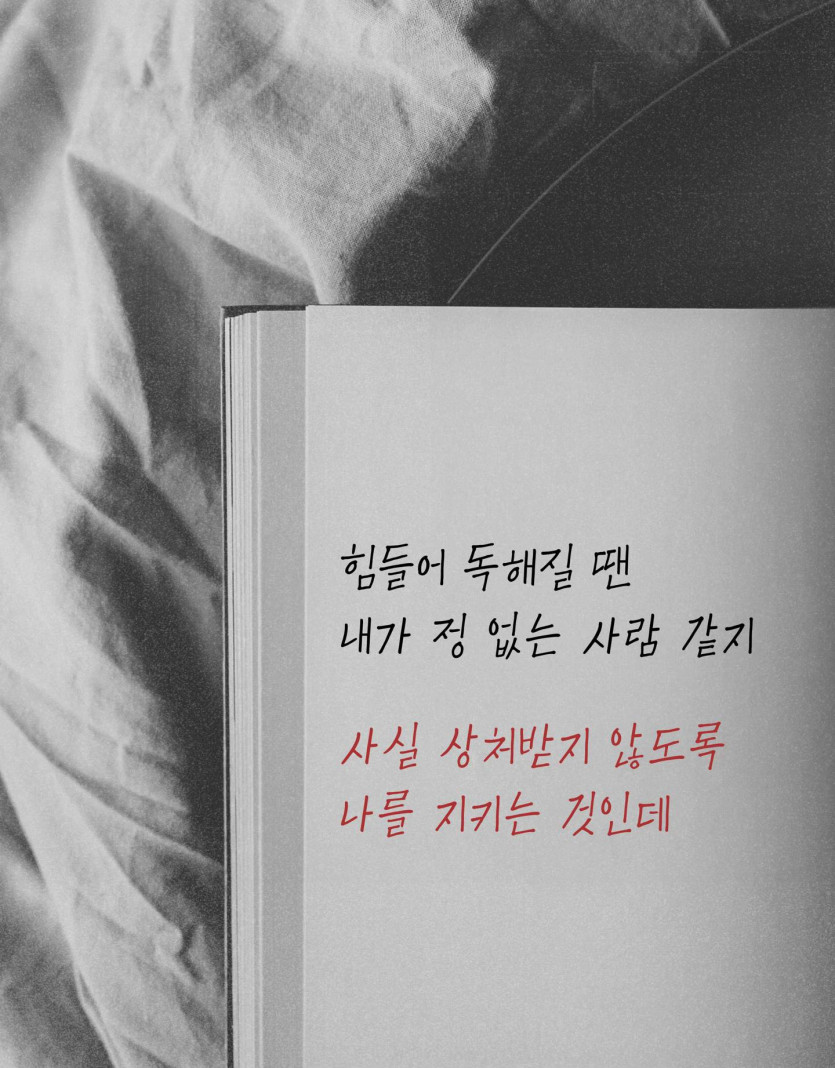 힘들어 독해질 땐
내가 정 없는 사람 같지
사실 상처받지 않도록
나를 지키는 것인데